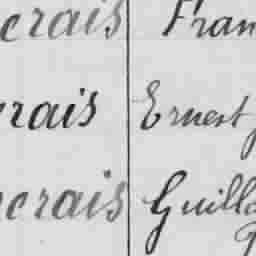 crais Fran
rais Ernest
crais Guill